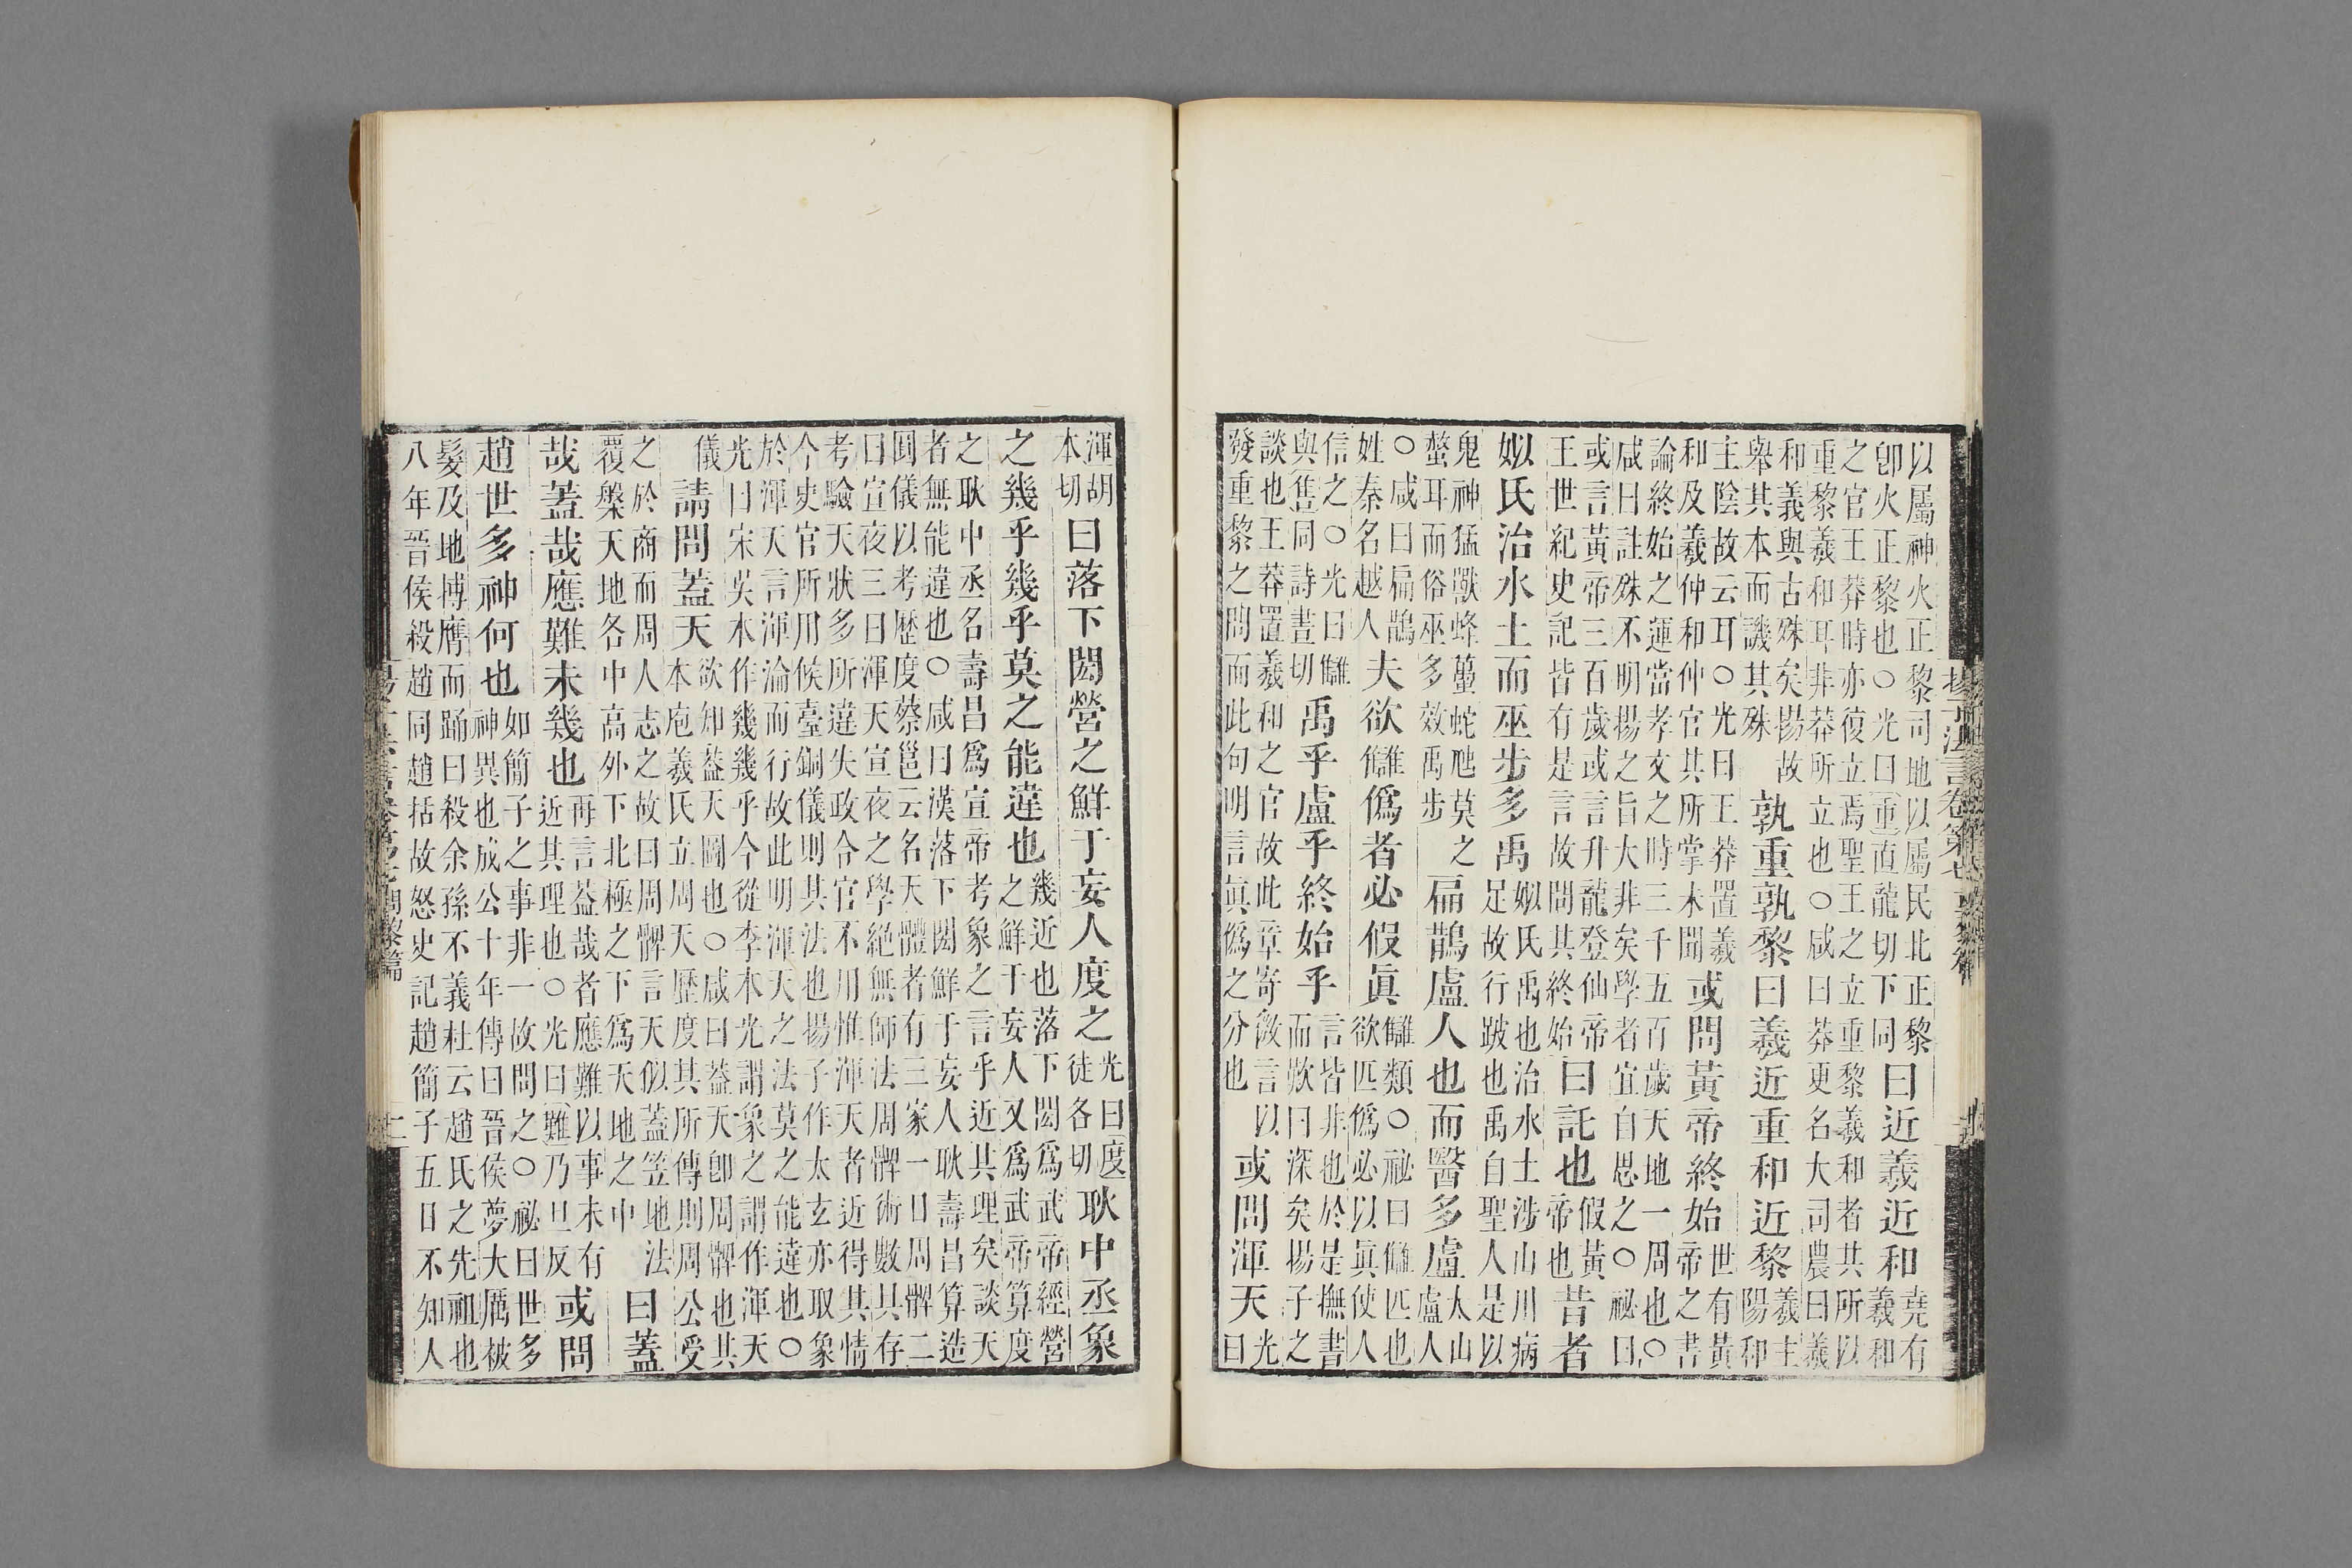 以屬神火正黎司地以屬民北正黎
即火正黎也○光曰重直龍切下同
曰近羲近和
堯有
羲和
之官王莽時亦復立焉聖王之立重黎羲和者共所以
重黎羲和耳非莽所立也○咸曰莽更名大司農曰羲
和義與古殊矣揚故
舉其本而譏其殊
孰重孰黎曰羲近重和近黎
羲主
陽和
主陰故云耳○光曰王莽置羲
和及羲仲和仲官其所掌未聞
或問黃帝終始
世有黃
帝之書
論終始之運當孝文之時三千五百歲天地一周也○
咸曰註殊不明揚之旨大非矣學者宜自思之○祕曰
或言黃帝三百歲或言升龍登仙帝
王世紀史記皆有是言故問其終始
曰託也
假黃
帝也
昔者
姒氏治水土而巫步多禹
姒氏禹也治水土涉山川病
足故行跛也禹自聖人是以
鬼神猛獸蜂蠆蛇虺莫之
螫耳而俗巫多效禹步
扁鵲盧人也而醫多盧
太山
盧人
○咸曰扁鵲
姓秦名越人
夫欲讎僞者必假眞
讎類○祕曰讎匹也
欲匹僞必以眞使人
信之○光曰讎
與售同詩晝切
禹乎盧乎終始乎
言皆非也於是撫書
而歎曰深矣揚子之
談也王莽置羲和之官故此章寄微言以
發重黎之問而此句明言眞僞之分也
或問渾天
光
曰
渾胡
本切
曰落下閎營之鮮于妄人度之
光曰度
徒各切
耿中丞象
之幾乎幾乎莫之能違也
幾近也落下閎爲武帝經營
之鮮于妄人又爲武帝算度
之耿中丞名壽昌爲宣帝考象之言乎近其理矣談天
者無能違也○咸曰漢落下閎鮮于妄人耿壽昌算造
圓儀以考歷度蔡邕云名天體者有三家一曰周髀二
曰宣夜三曰渾天宣夜之學絶無師法周髀術數具存
考驗天狀多所違失政合官不用惟渾天者近得其情
今史官所用候臺銅儀則其法也揚子作太玄亦取象
於渾天言渾淪而行故此明渾天之法莫之能違也○
光曰宋吳本作幾幾乎今從李本光謂象之謂作渾天
儀
請問蓋天
欲知葢天圖也○咸曰葢天卽周髀也其
本庖羲氏立周天歷度其所傳則周公受
之於商而周人志之故曰周髀言天似蓋笠地法
覆槃天地各中高外下北極之下爲天地之中
曰蓋
哉蓋哉應難未幾也
再言葢哉者應難以事未有
近其理也○光曰難乃旦反
或問
趙世多神何也
如簡子之事非一故問之○祕曰世多
神異也成公十年傳曰晉侯夢大厲被
髮及地搏膺而踊曰殺余孫不義杜云趙氏之先祖也
八年晉侯殺趙同趙括故怒史記趙簡子五日不知人